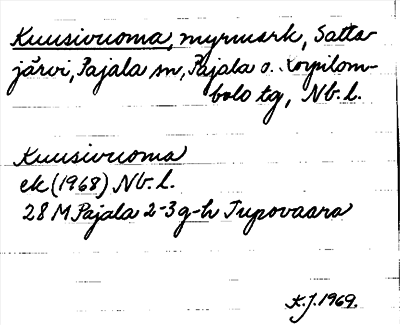 Kuusivuoma, myrmark, Satta-
järvi, Pajala sn, Pajala o. Korpilom-
bolo tg, Nb. l.
Kuusivuoma
ek (1968) Nb. l.
28 M Pajala 2-3 g-h Tupovaara
K.J. 1969.